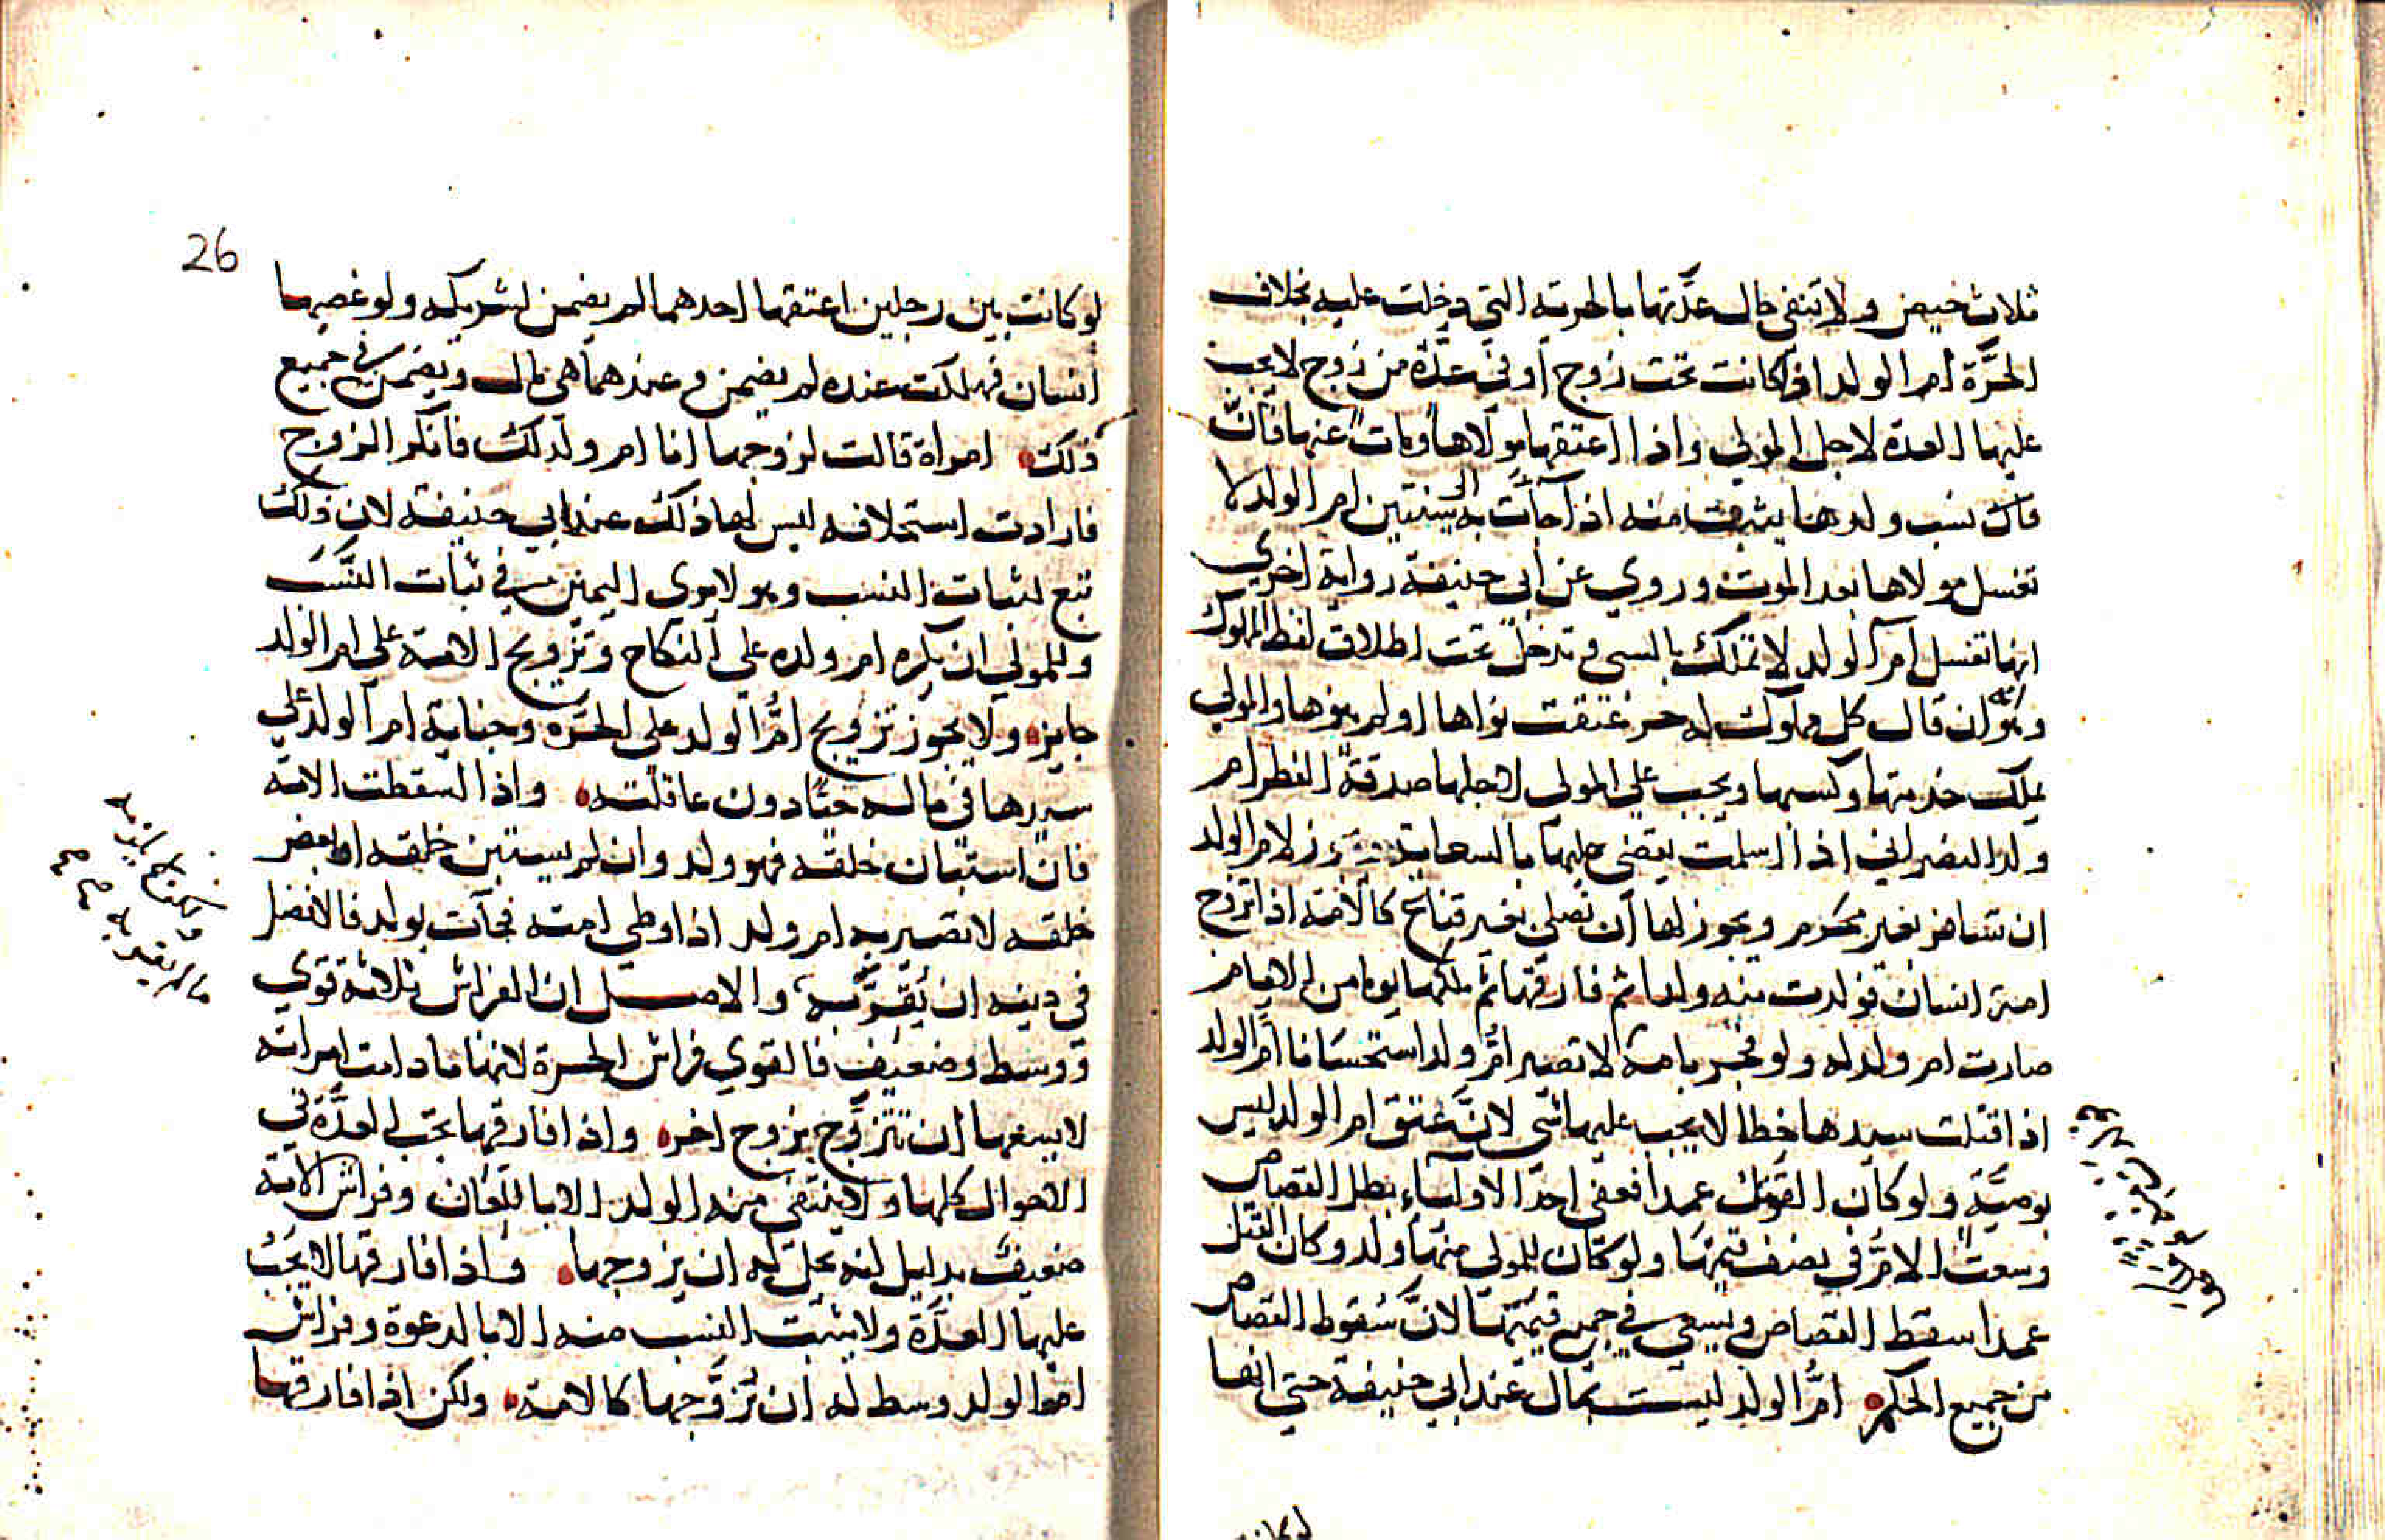 ثلاث حيض ولا تنفى حال عدّتها بالحرية التي دخلت عليه بخلاف
الحرّة أمر الولد اذا كانت تحت زوج أو في عدّة من زوج لا يجب
عليها العدة لاجل المولى واذا اعتقها مولاها ومات عنها فانّ
فان نسب ولدها يثبت منه اذا جاءت به الى سنتين ام الولد لا
تغسل مولاها بعد الموت وروي عن ابي حنيفة رواية اخرى
انها تغسل ام الولد لا تملك بالسبي وتدخل تحت اطلاق لفظ المملوك
وهو ان قال كل مملوك له حر عتقت نواها او لم ينوها والمولى
يملك خدمتها وكسبها ويجب على المولى لاجلها صدقة الفطر ام
ولد النصراني اذا اسلمت يقضى عليها بالسعاية لام الولد
ان تسافر بغير محرم ويجوز لها أن تصلي بغير قناع كالأمة اذا تزوج
امة انسان فولدت منه ولدا ثم فارقها ثم ملكها يوما من الايام
صارت ام ولد له ولو فجر بامة لا تصير أمّ ولد استحسانا أم الولد
اذا قتلت سيدها خطا لا يجب عليها شي لانّ عتق ام الولد ليس
بوصيّة ولو كان القتل عمدا فعفى احد الاولياء بطل القصاص
وسعت الامّ في نصف قيمتها ولو كان للمولى منها ولد وكان القتل
عمدا سقط القصاص ويسعى في جميع قيمتها لانّ سقوط القصاص
من جميع الحكم امّ الولد ليست بمال عند ابي حنيفة حتى انها
لو كانت بين رجلين اعتقها احدهما لم يضمن لشريكه ولو غصبها
انسان فهلكت عنده لم يضمن وعندهما هي مال ويضمن في جميع
ذلك امراة قالت لزوجها انا ام ولد لك فانكر الزوج
فارادت استحلافه ليس لها ذلك عند ابي حنيفة لان ذلك
تبع لثبات النسب وهو لا يرى اليمين في ثبات النسب
وللمولى ان يكره ام ولده على النكاح وتزويج الامة على ام الولد
جايزه ولا يجوز تزويج امّ الولد على الحرّه وجناية ام الولد على
سيدها في ماله دون عاقلته واذا اسقطت الامة
فان استبان خلقه فهو ولد وان لم يستبن خلقه او بعض
خلقه لا تصير به ام ولد اذا وطي امته فجآت بولد فالافضل
في دينه ان يُقِرّ به والاصل ان الفراش ثلاثة قوي
ووسط وضعيف فالقوي فراش الحرة لانها ما دامت امراته
لا يسعها أن تتزوّج بزوج اخر واذا فارقها تجب العدّة في
الاحوال كلها ولا ينتفي منه الولد الا باللعان وفراش الامة
ضعيف بدليل انه يحل له ان يزوجها واذا فارقها لا يجب
عليها العدّة ولا يثبت النسب منه الا بالدعوة وفراش
ام الولد وسط له أن يُزوّجها كالامة ولكن اذا فارقها
26